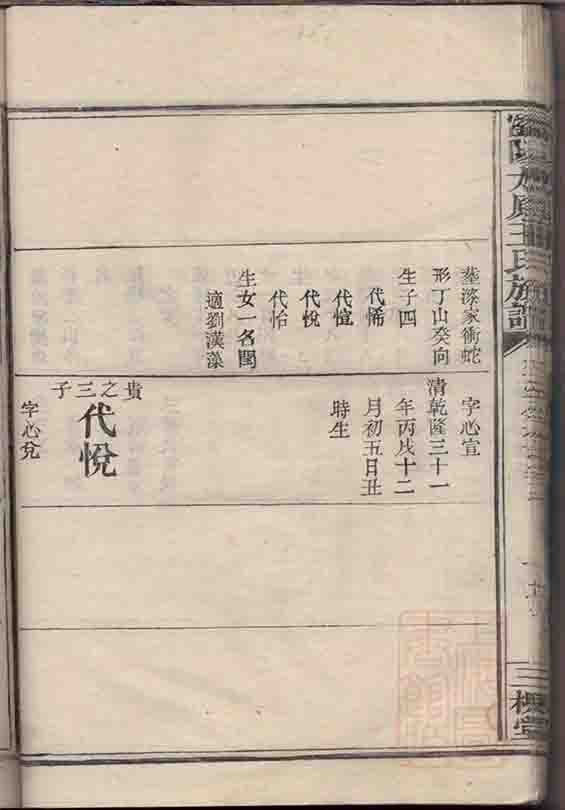 太原王氏族譜
三槐堂
塟漆家衝蛇
形丁山癸向
生子四
代悕
代愷
代悅
代怡
生女一名閏
適劉漢藻
字心宣
清乾隆三十一
年丙戌十二
月初五日丑
時生
貴之三子
代悅
字心兊